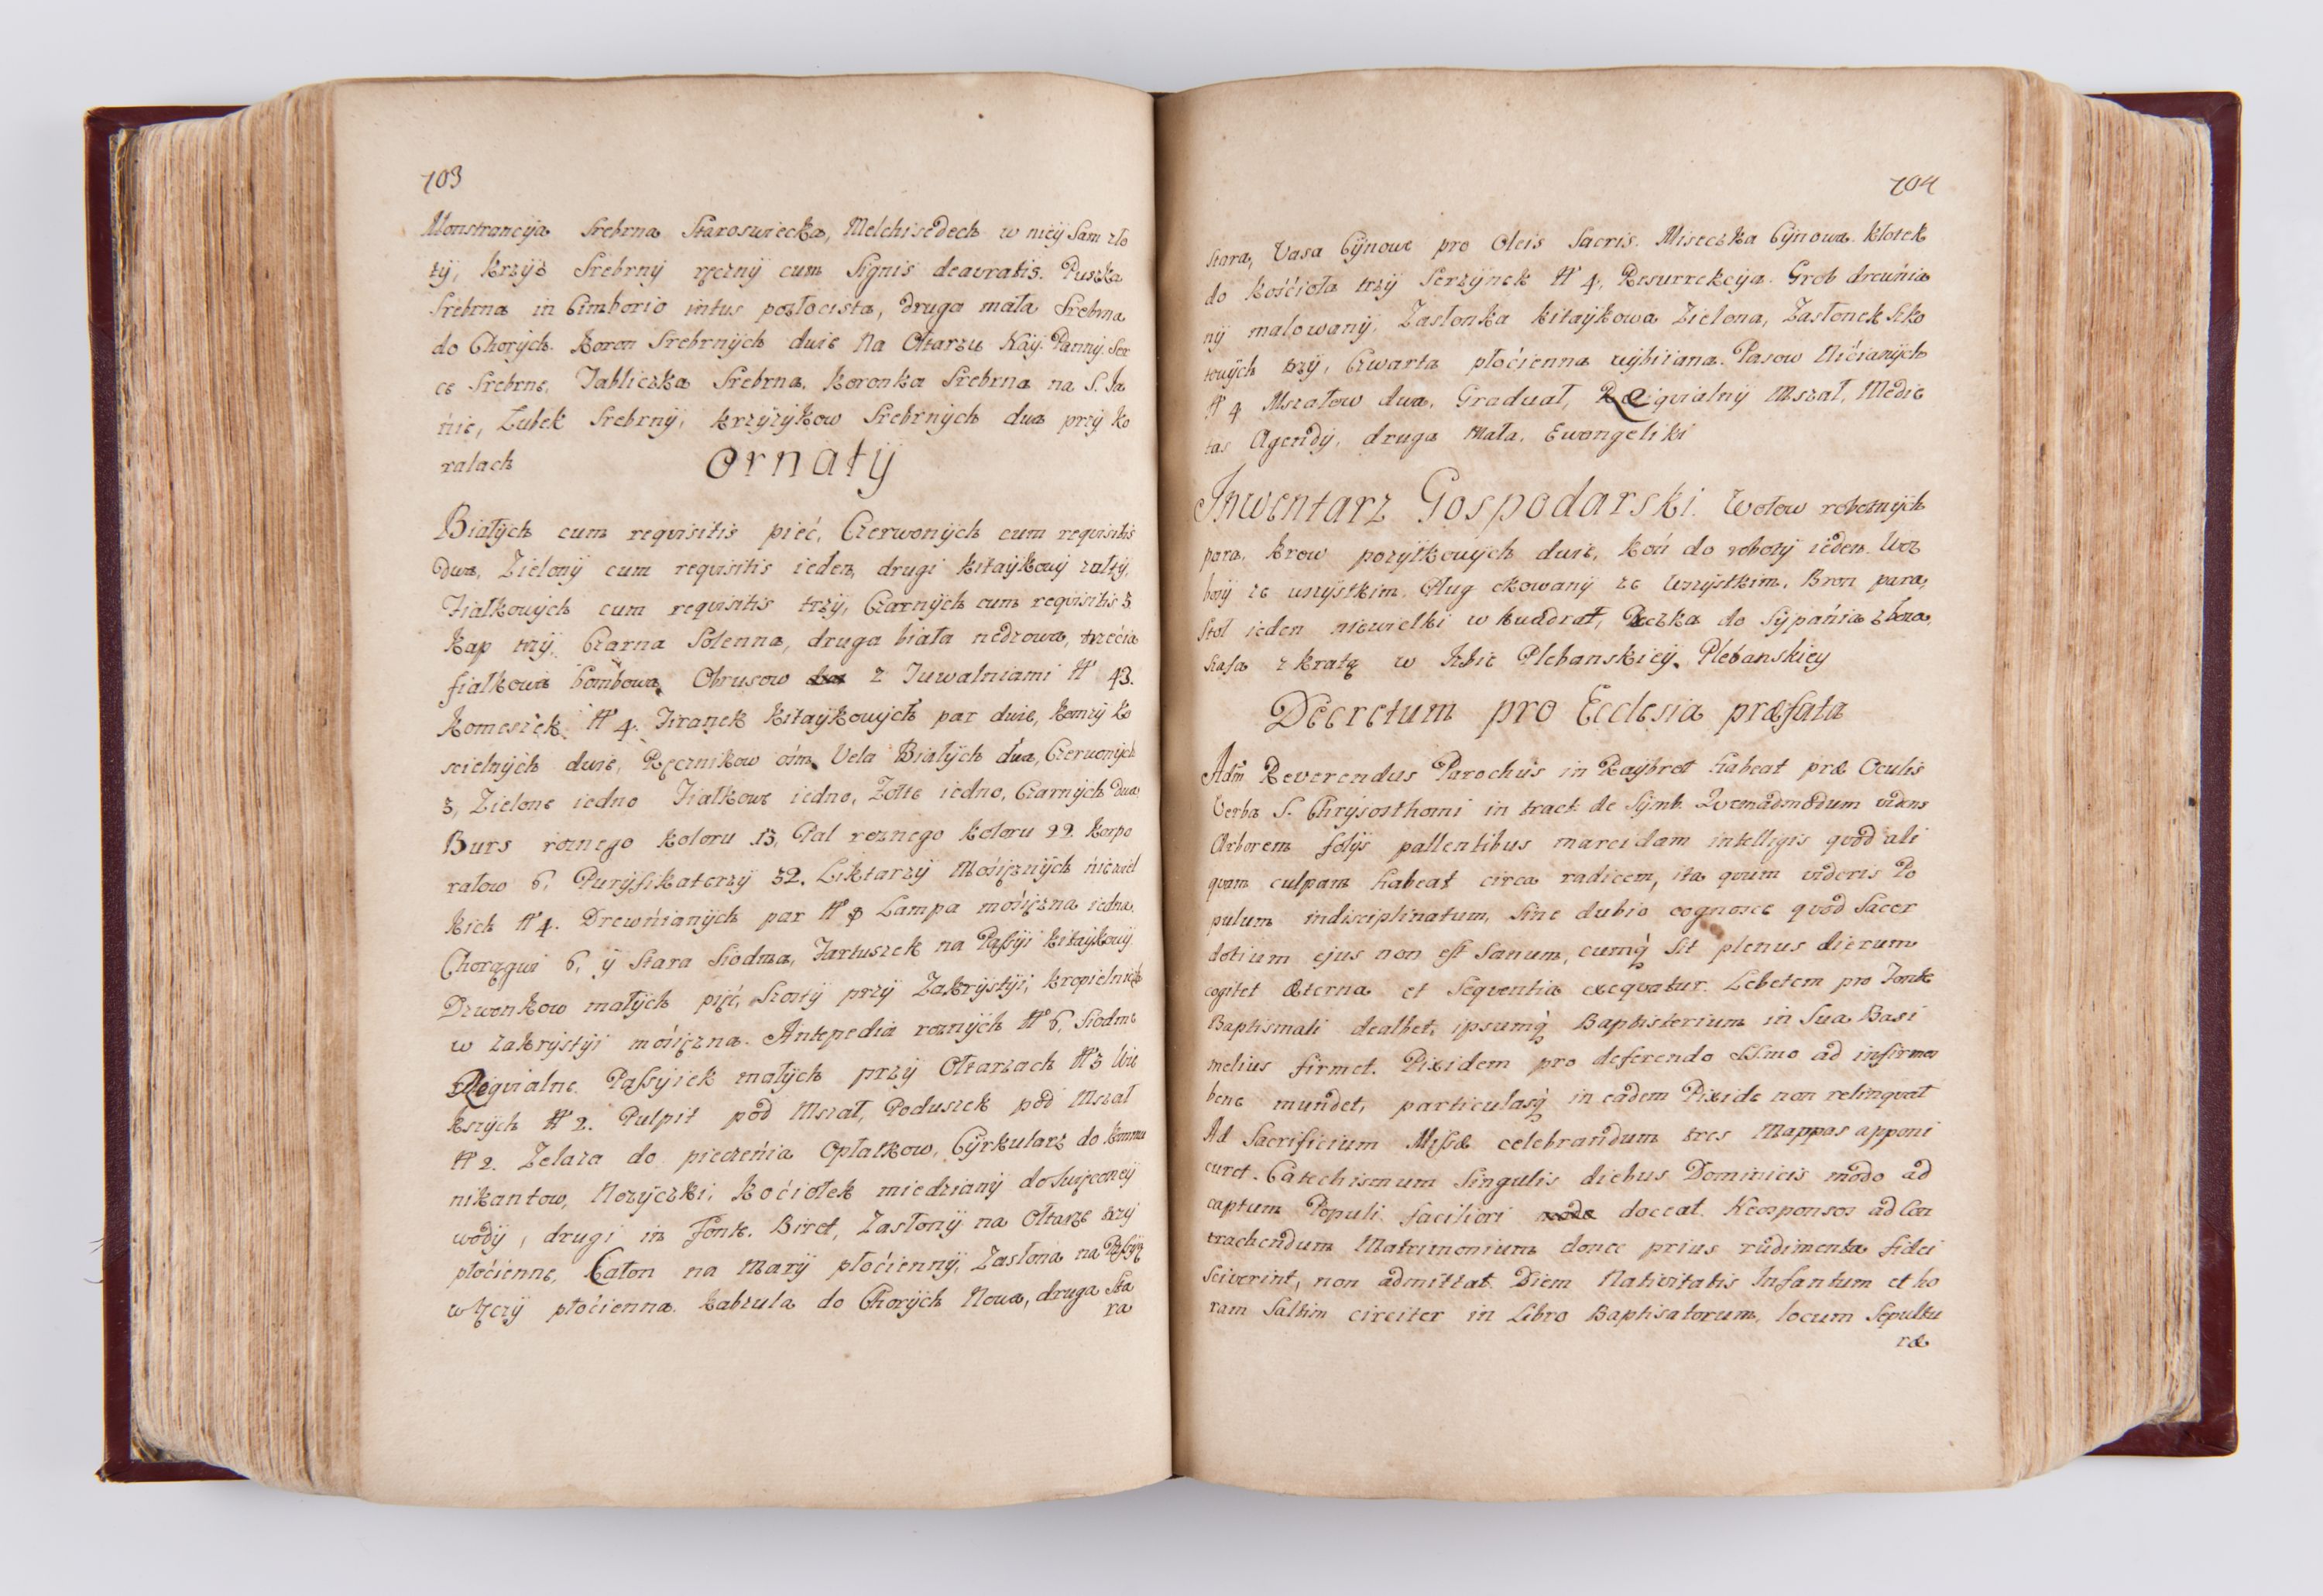 703
Monstrancya Srebrna Staroswiecka, Melchisedech w nieÿ Sam zło
tÿ, krzÿż Srebrnÿ ręcznÿ cum Signis deauratis. Puszka
Srebrna in Cimborio intus pozłocista, druga mała Srebrna
do Chorÿch. Koron Srebrnÿch dwie Na Ołtarzu Naÿ. Pannÿ. Ser
ce Srebrne, Tabliczka Srebrna, koronka Srebrna na S. Ja
nie, Ząbek Srebrnÿ, krzÿżÿkow Srebrnÿch dwa przÿ ko
ralach
Ornatÿ
Białÿch cum requisitis pieć, Czerwonÿch cum requisitis
dwa, Zielonÿ cum requisitis ieden, drugi kitaÿkowÿ zułtÿ,
Fiałkowÿch cum requisitis trzÿ, Czarnÿch cum requisitis 3.
Kap trzÿ, Czarna Solenna, druga biała nedzowa, trzećia
fiałkowa bombowa, Obrusow z Tuwalniami Nº 43.
Komeszek Nº 4. Firanek kitaÿkowÿch par dwie, komżÿ ko
scielnÿch dwie, Ręcznikow ośm, Vela Białÿch dwa, Czerwonÿch
3, Zielone iedno Fiałkowe iedno, Zołte iedno, Czarnÿch dwa
Burs roznego koloru 13, Pal roznego koloru 22. korpo
rałow 6, Purÿfikaterzÿ 32. Liktarzÿ Mosięznÿch niewiel
kich Nº 4. Drewnianÿch par Nº Lampa mosięzna iedna.
Chorągwi 6, ÿ Stara Siodma, Fartuszek na Passÿi kitaÿkowÿ
Dzwonkow małÿch pięć, Szostÿ przÿ Zakrÿstÿi, kropielnica
w zakrÿstÿi mosięzna. Antepedia roznÿch Nº 6, Siodme
rekquialne. Passÿiek małÿch przÿ Ołtarzach Nº 3 Wie
kszÿch Nº 2. Pulpit pod Mszał, Poduszek pod Mszał
Nº 2. Zelaza do pieczenia Opłatkow, Cÿrkularz do kommu
nikantow, Nozÿczki, kociołek miedzianÿ do Swięconeÿ
wodÿ, drugi in Fonte. Biret, Zasłonÿ na Ołtarze trzÿ
płoćienne, Całon na Marÿ płoćiennÿ, Zasłona na Passÿą
w płoćienna. kabzula do Chorÿch Nowa, druga Sta
ra
704
Stara, Vasa Cÿnowe pro Oleis Sacris. Miseczka Cÿnowa. Kłotek
do kośćioła trzÿ Serzÿnek Nº 4, Resurrekcÿa. Grob drewnia
nÿ malowanÿ, Zasłonka kitaÿkowa Zielona, Zasłonek Siko
rowÿch trzÿ, Czwarta płoćienna wÿbiiana. Pasow Nićianÿch
Nº 4 Mszałow dwa, Graduał, Reiquialnÿ Mszał, Medie
tas Agendÿ, druga Mała, Ewangeliki
Inwentarz Gospodarski. Wołow robotnÿch
para, krow pozÿtkowÿch dwie, koń do robotÿ ieden. Woz
bosÿ ze wszÿstkim. Pług okowanÿ ze Wszÿstkim. Bron para,
Stoł ieden niewielki w kwadrat, Beczka do Sÿpania zboza,
Szafa z kratą w Izbie Plebanskieÿ. Plebanskiey
Decretum pro Ecclesia præfata
Adm̃ Reverendus Parochus in Raÿbrot habeat præ Oculis
Verba S. Chrÿsosthomi in tract. de Sÿmb. Qvemadmodum videns
Arborem folÿs pallentibus marcidam intelligis qvod ali
qvam culpam habeat circa radicem, ita qvum videris Po
pulum indisciplinatum, Sine dubio cognosce qvod Sacer
dotium ejus non est Sanum, cumq́ Sit plenus dierum
cogitet æterna et Seqventia exeqvatur. Lebetem pro Fonte
Baptismali dealbet, ipsumq́ Baptisterium in Sua Basi
melius firmet. Pixidem pro deferendo SSmo ad infirmos
bene mundet, particulasq́ in eadem Pixide non relinqvat
Ad Sacrificium Missæ celebrandum tres Mappas apponi
curet. Catechismum Singulis diebus Dominicis modo ad
captum Populi faciliori modo doceat. Neosponsos ad Con
trachendum Matrimonium donec prius rudimenta fidei
Sciverint, non admittat. Diem Nativitatis Infantum et ho
ram Saltim circiter in Libro Baptisatorum, locum Sepultu
ræ